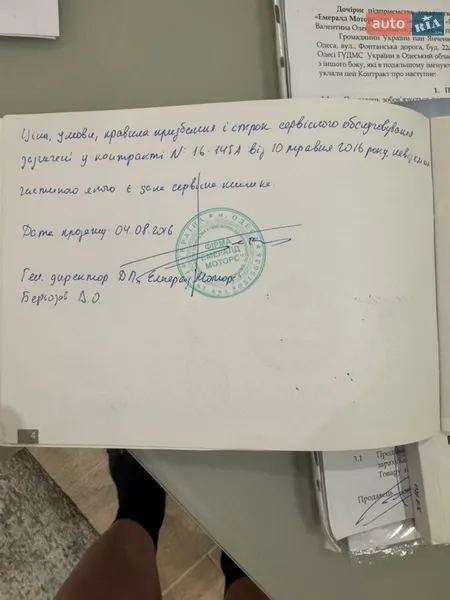 Дочірнє підприємство
«Емеральд Мото
Валентина Олек
Громадянин України пан Янчен
Одеса, вул. Фонтанська дорога, буд. 22
Одесі ГУДМС України в Одеській облас
з іншого боку, які в подальшому іменую
уклали цей Контракт про наступне:
1. П
auto RIA.com
Ціна, умови, правила придбання і строк сервісного обслуговування
зазначені у контракті № 16-145А від 10 травня 2016 року, невід'ємною
частиною якого є дана сервісна книжка
Дата продажу 04.08.2016
УКРАЇНА м. ОДЕСА
ФІРМА
"ЕМЕРАЛД
МОТОРС"
Ген. директор ДП "Емералд Моторс"
Березов В.О.
4
3.1 Прода
зараху
Товару
Продавець